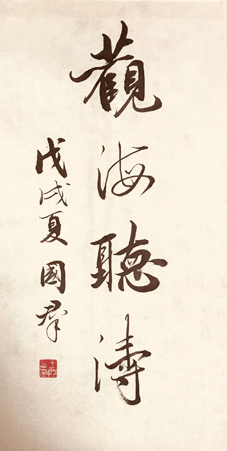 觀海聽濤
戊戌夏國群